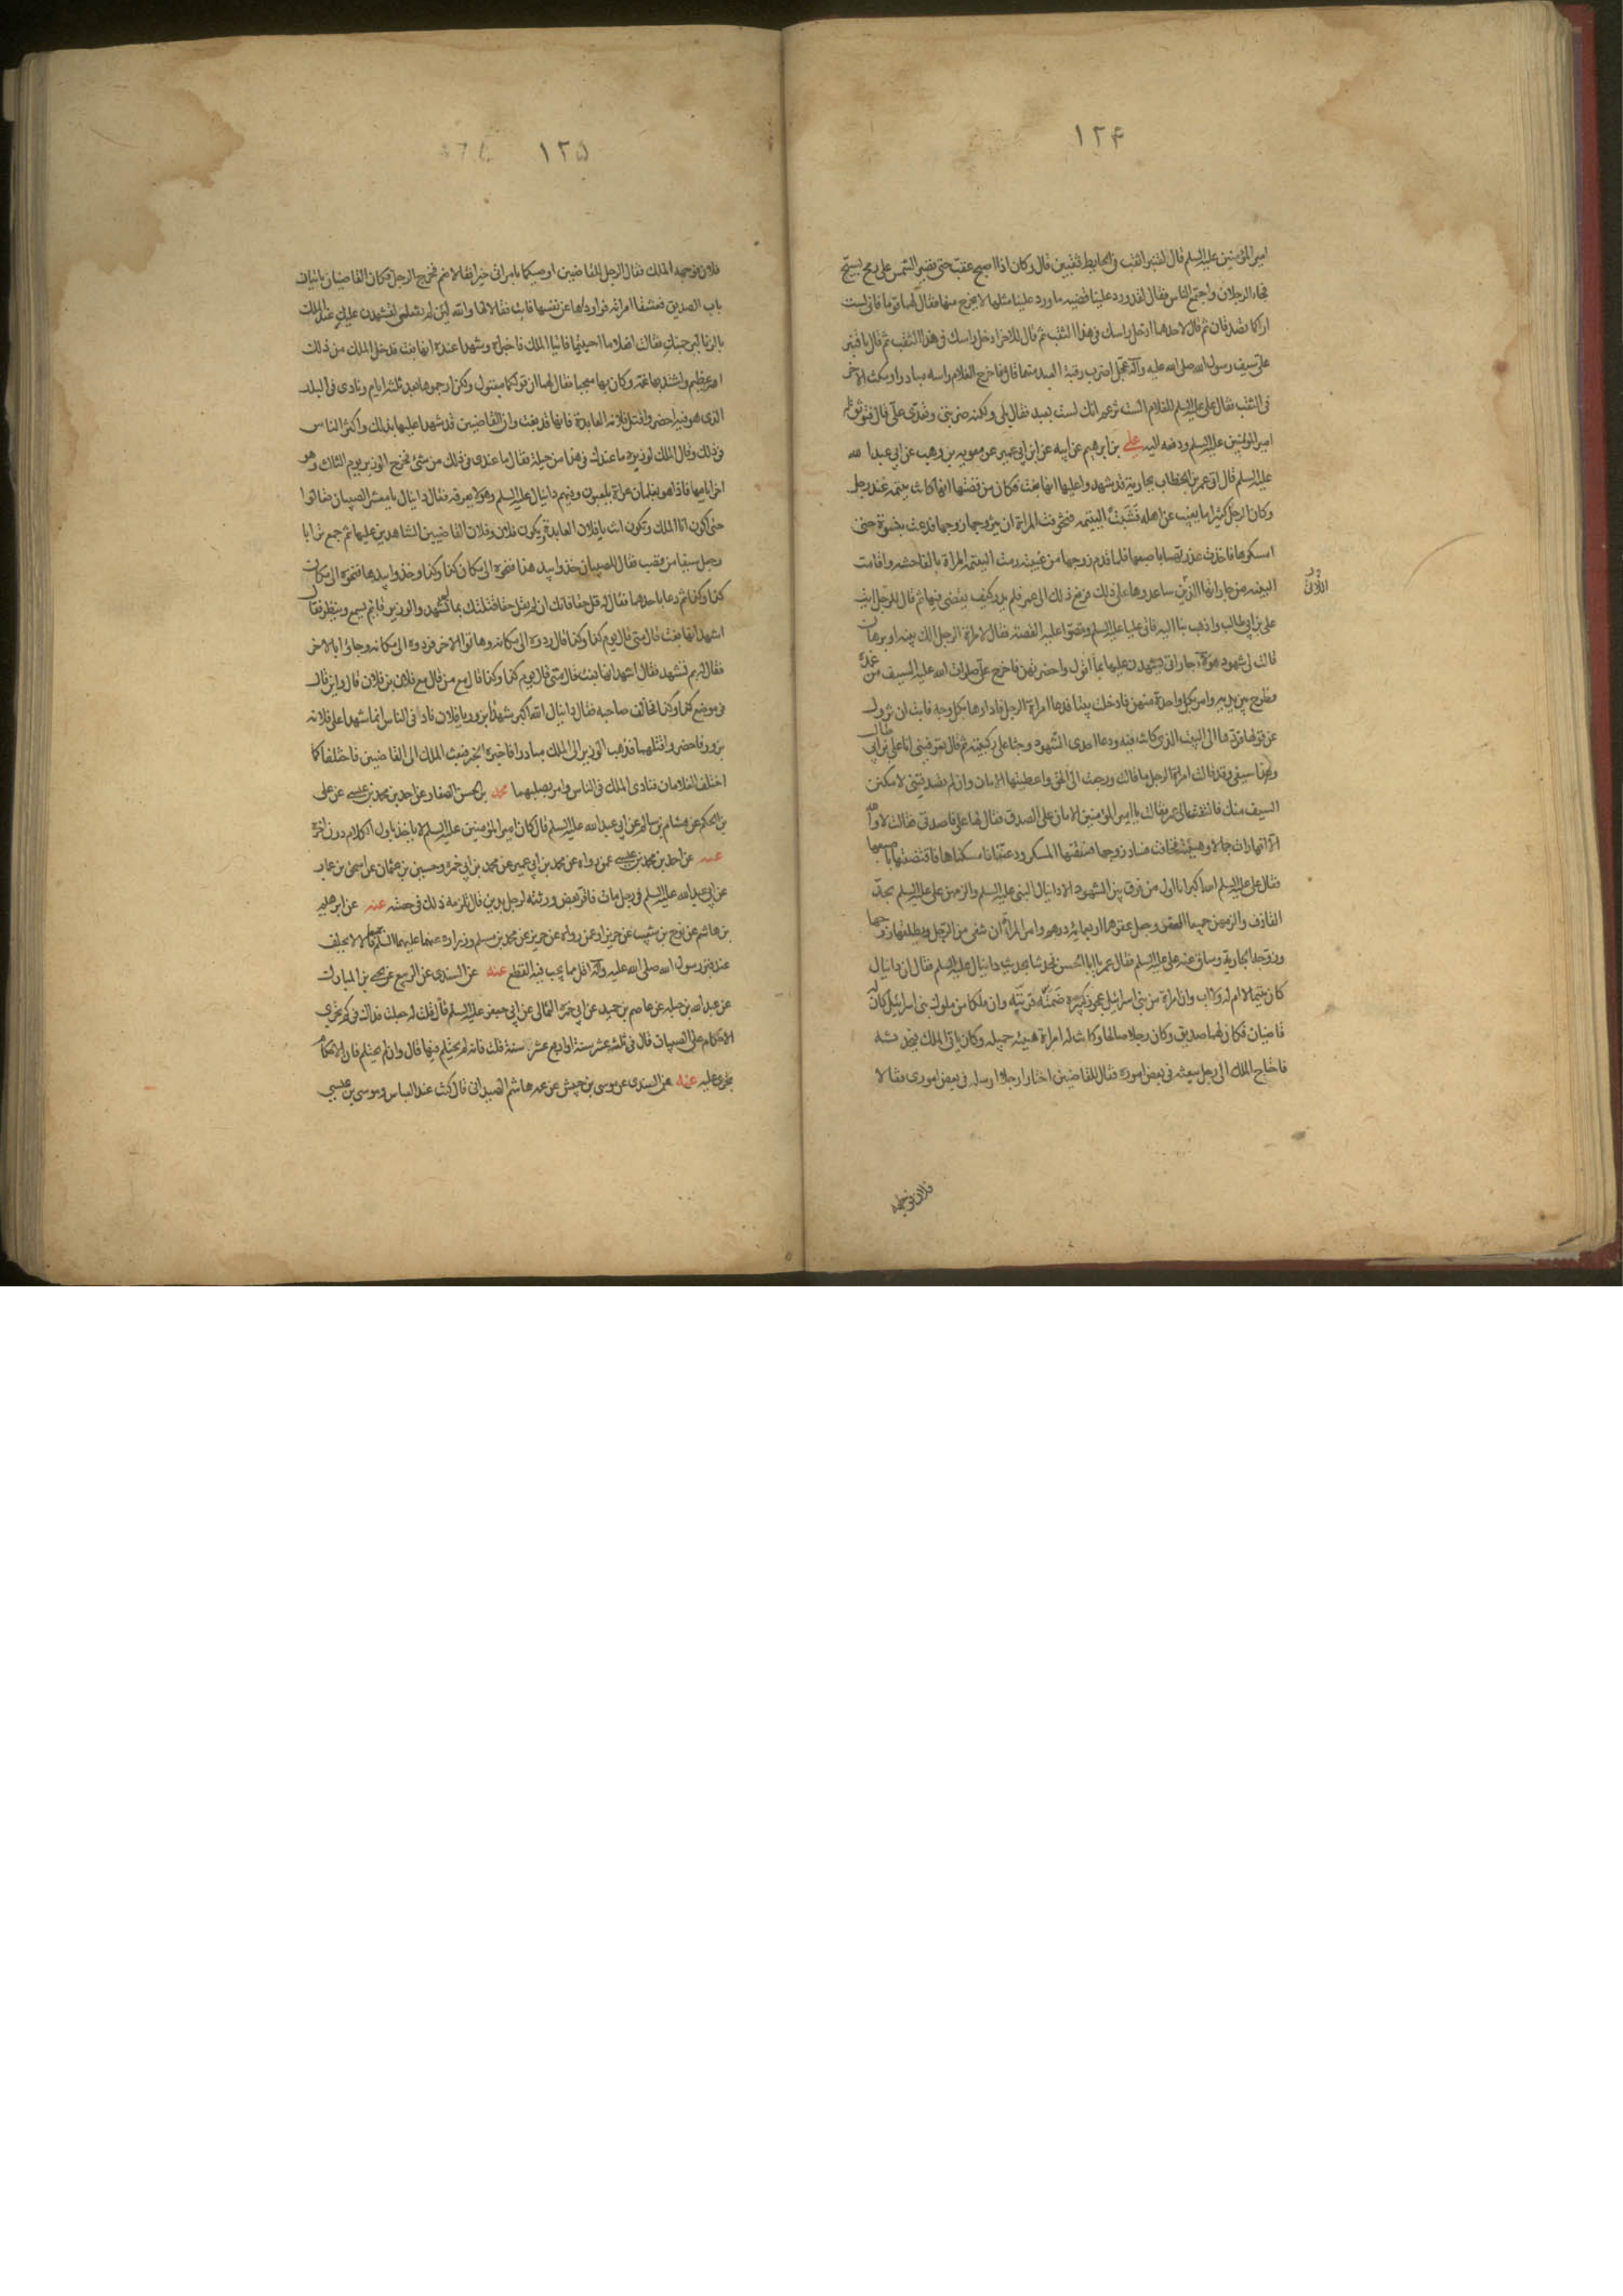 ١٢۴
امير المؤمنين عليه السلم قال لقنبر اثقب في الحايط ثقبين قال وكان اذا اصبح عقب حتى تصير الشمس على رمح يسبح
فجاء الرجلان واجتمع الناس فقال لقد ورد علينا قضيه ما ورد علينا مثلها لا يخرج منها فقال لهما قوما فاني لست
اراكما تصدقان ثم قال لاحدهما ادخل راسك في هذا الثقب ثم قال للاخر ادخل راسك في هذا الثقب ثم قال يا قنبر
علي بسيف رسول الله صلى الله عليه وآله عجل اضرب رقبة العبد منهما قال فاخرج الغلام راسه مبادرا ومكث الاخر
في الثقب فقال علي عليه السلم للغلام الست تزعم انك لست بعبد فقال بلى ولكنه ضربني وتعدى علي قال فتوثق له
امير المؤمنين عليه السلم ودفعه اليه علي بن ابرهيم عن ابيه عن ابن ابي عمير عن معوية بن وهب عن ابي عبد الله
عليه السلم قال اتي عمر بن الخطاب بجارية قد شهدوا عليها انها بغت فكان من قصتها انها كانت يتيمة عند رجل
وكان الرجل كثيرا ما يغيب عن اهله فشبت اليتيمه فتخوفت المراة ان يتزوجها زوجها فدعت بنسوة حتى
امسكوها فاخذت عذرتها باصبعها فلما قدم زوجها من غيبته رمت اليتيمة المراة بالفاحشه واقامت
البينه من جاراتها اللاتي ساعدوها على ذلك فرفع ذلك الى عمر فلم يدر كيف يقضي فيها ثم قال للرجل ايت
اللاتي
علي بن ابي طالب واذهب بنا اليه فاتى عليا عليه السلم وقصوا عليه القصة فقال لامراة الرجل الك بينه او برهان
قالت لي شهود هؤلاء جاراتي يشهدن عليها بما اقول واحضرتهن فاخرج علي صلوات الله عليه السيف من غمده
وطرح بين يديه وامر بكل واحدة منهن فادخلت بيتا فدعا امراة الرجل فادارها بكل وجه فابت ان تزول
عن قولها فردها الى البيت الذي كانت فيه ودعا احدى الشهود وجثا على ركبتيه ثم قال تعرفيني انا علي بن ابي طالب
وهذا سيفي وقد قالت امراة الرجل ما قالت ورجعت الى الحق واعطيتها الامان وان لم تصدقيني لامكنن
السيف منك فالتفتت الى عمر فقالت يا امير المؤمنين الامان على الصدق فقال لها علي فاصدقي فقالت لا والله
الا انها رات جمالا وهيئة فخافت فساد زوجها فسقتها المسكر ودعتنا فامسكناها فاقتضتها باصبعها
فقال علي عليه السلم الله اكبر انا اول من فرق بين الشهود الا دانيال النبي عليه السلم والزمهن علي عليه السلم بحد
القاذف والزمهن جميعا العقر وجعل عقرها اربعمائة درهم وامر المراة ان تنفى من الرجل ويطلقها زوجها
وزوجه الجارية وساق عنه علي عليه السلم فقال عمر يا ابا الحسن فحدثنا بحديث دانيال عليه السلم فقال ان دانيال
كان يتيما لا ام له ولا اب وان امراة من بني اسرائيل عجوز كبيرة ضمته فربته وان ملكا من ملوك بني اسرائيل كان له
قاضيان فكان لهما صديق وكان رجلا صالحا وكانت له امراة هيئه جميله وكان ياتي الملك فيحدثه
فاحتاج الملك الى رجل يبعثه في بعض اموره فقال للقاضيين اختارا رجلا ارسله في بعض اموري فقالا
فلان فوجهه
١٢۵
فلان فوجهه الملك فقال الرجل للقاضيين اوصيكما بامراتي خيرا فقالا نعم فخرج الرجل فكان القاضيان ياتيان
باب الصديق فعشقا امراته فراوداها عن نفسها فابت فقالا لها والله لئن لم تفعلي لنشهدن عليك عند الملك
بالزنا ثم لنرجمنك فقالت افعلا ما احببتما فاتيا الملك فاخبراه وشهدا عنده انها بغت فدخل الملك من ذلك
امر عظيم واشتد بها غمه وكان بها معجبا فقال لهما ان قولكما مقبول ولكن ارجموها بعد ثلثة ايام ونادى في البلد
الذي هو فيه احضروا قتل فلانه العابدة فانها قد بغت وان القاضيين قد شهدا عليها بذلك واكثر الناس
في ذلك وقال الملك لوزيره ما عندك في هذا من حيلة فقال ما عندي في ذلك من شيء فخرج الوزير يوم الثالث وهو
اخر ايامها فاذا هو بغلمان عراة يلعبون وفيهم دانيال عليه السلم وهو لا يعرفه فقال دانيال يا معشر الصبيان تعالوا
حتى اكون انا الملك وتكون انت يا فلان العابدة ويكون فلان وفلان القاضيين الشاهدين عليها ثم جمع ترابا
وجعل سيفا من قصب فقال للصبيان خذوا بيد هذا فنحوه الى مكان كذا وكذا وخذوا بيد هذا فنحوه الى مكان
كذا وكذا ثم دعا باحدهما فقال له قل حقا فانك ان لم تقل حقا قتلتك بما تشهد والوزير قائم يسمع وينظر فقال
اشهد انها بغت قال متى قال يوم كذا وكذا قال ردوه الى مكانه وهاتوا الاخر فردوه الى مكانه وجاؤا بالاخر
فقال له بم تشهد فقال اشهد انها بغت قال متى قال يوم كذا وكذا قال مع من قال مع فلان بن فلان قال واين قال
في موضع كذا وكذا فخالف صاحبه فقال دانيال الله اكبر شهدا بزور يا فلان ناد في الناس انما شهدا على فلانه
بزور فاحضروا قتلهما فذهب الوزير الى الملك مبادرا فاخبره الخبر فبعث الملك الى القاضيين فاختلفا كما
اختلف الغلامان فنادى الملك في الناس وامر بصلبهما محمد بن الحسن الصفار عن احمد بن محمد بن عيسى عن علي
بن الحكم عن هشام بن سالم عن ابي عبد الله عليه السلم قال كان امير المؤمنين عليه السلم لا ياخذ باول الكلام دون اخره
عنه عن احمد بن محمد بن عيسى عمن رواه عن محمد بن ابي عمير عن محمد بن ابي حمزة وحسين بن عثمان عن اسحق بن عمار
عن ابي عبد الله عليه السلم في رجل مات فاقر بعض ورثته لرجل بدين قال يلزمه ذلك في حصته عنه عن ابرهيم
بن هاشم عن نوح بن شعيب عن حريز او عمن رواه عن حريز عن محمد بن مسلم وزرارة عنهما عليهما السلم جميعا قالا لا يحلف
عند قبر رسول الله صلى الله عليه وآله اقل مما يجب فيه القطع عنه عن السندي عن الربيع عن يحيى بن المبارك
عن عبد الله بن جبله عن عاصم بن حميد عن ابي حمزة الثمالي عن ابي جعفر عليه السلم قال قلت له جعلت فداك في كم تجري
الاحكام على الصبيان قال في ثلثة عشر سنة او اربع عشر سنة قلت فانه لم يحتلم فيها قال وان لم يحتلم فان الاحكام
تجري عليه عنه عن السندي عن موسى بن حبيش عن عمه هاشم الصيداني قال كنت عند العباس وموسى بن عيسى